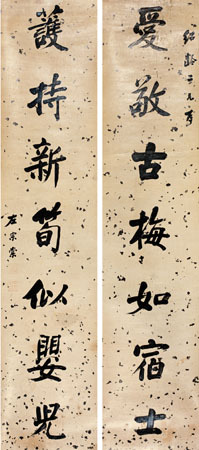 愛敬古梅如宿士
護持新筍似嬰兒
左宗棠